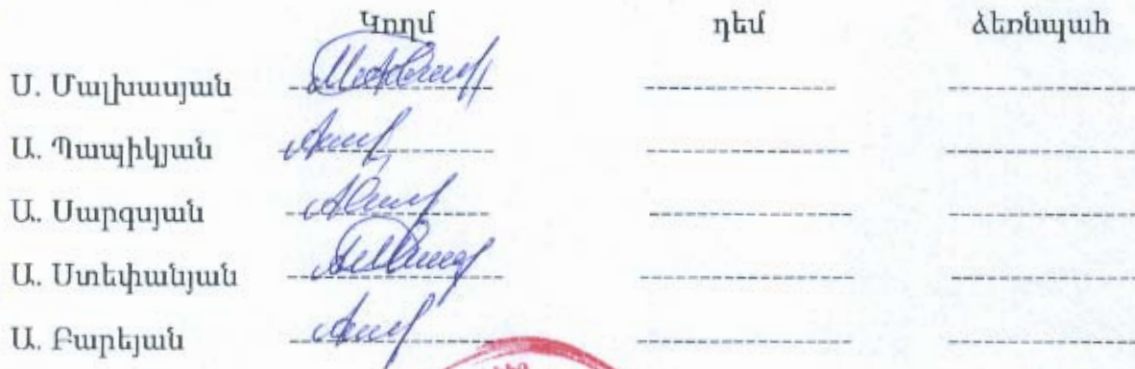 Կողմ դեմ ձեռնպահ
Ս. Մալխասյան
Ա. Պապիկյան
Ա. Սարգսյան
Ա. Ստեփանյան
Ա. Բարեյան